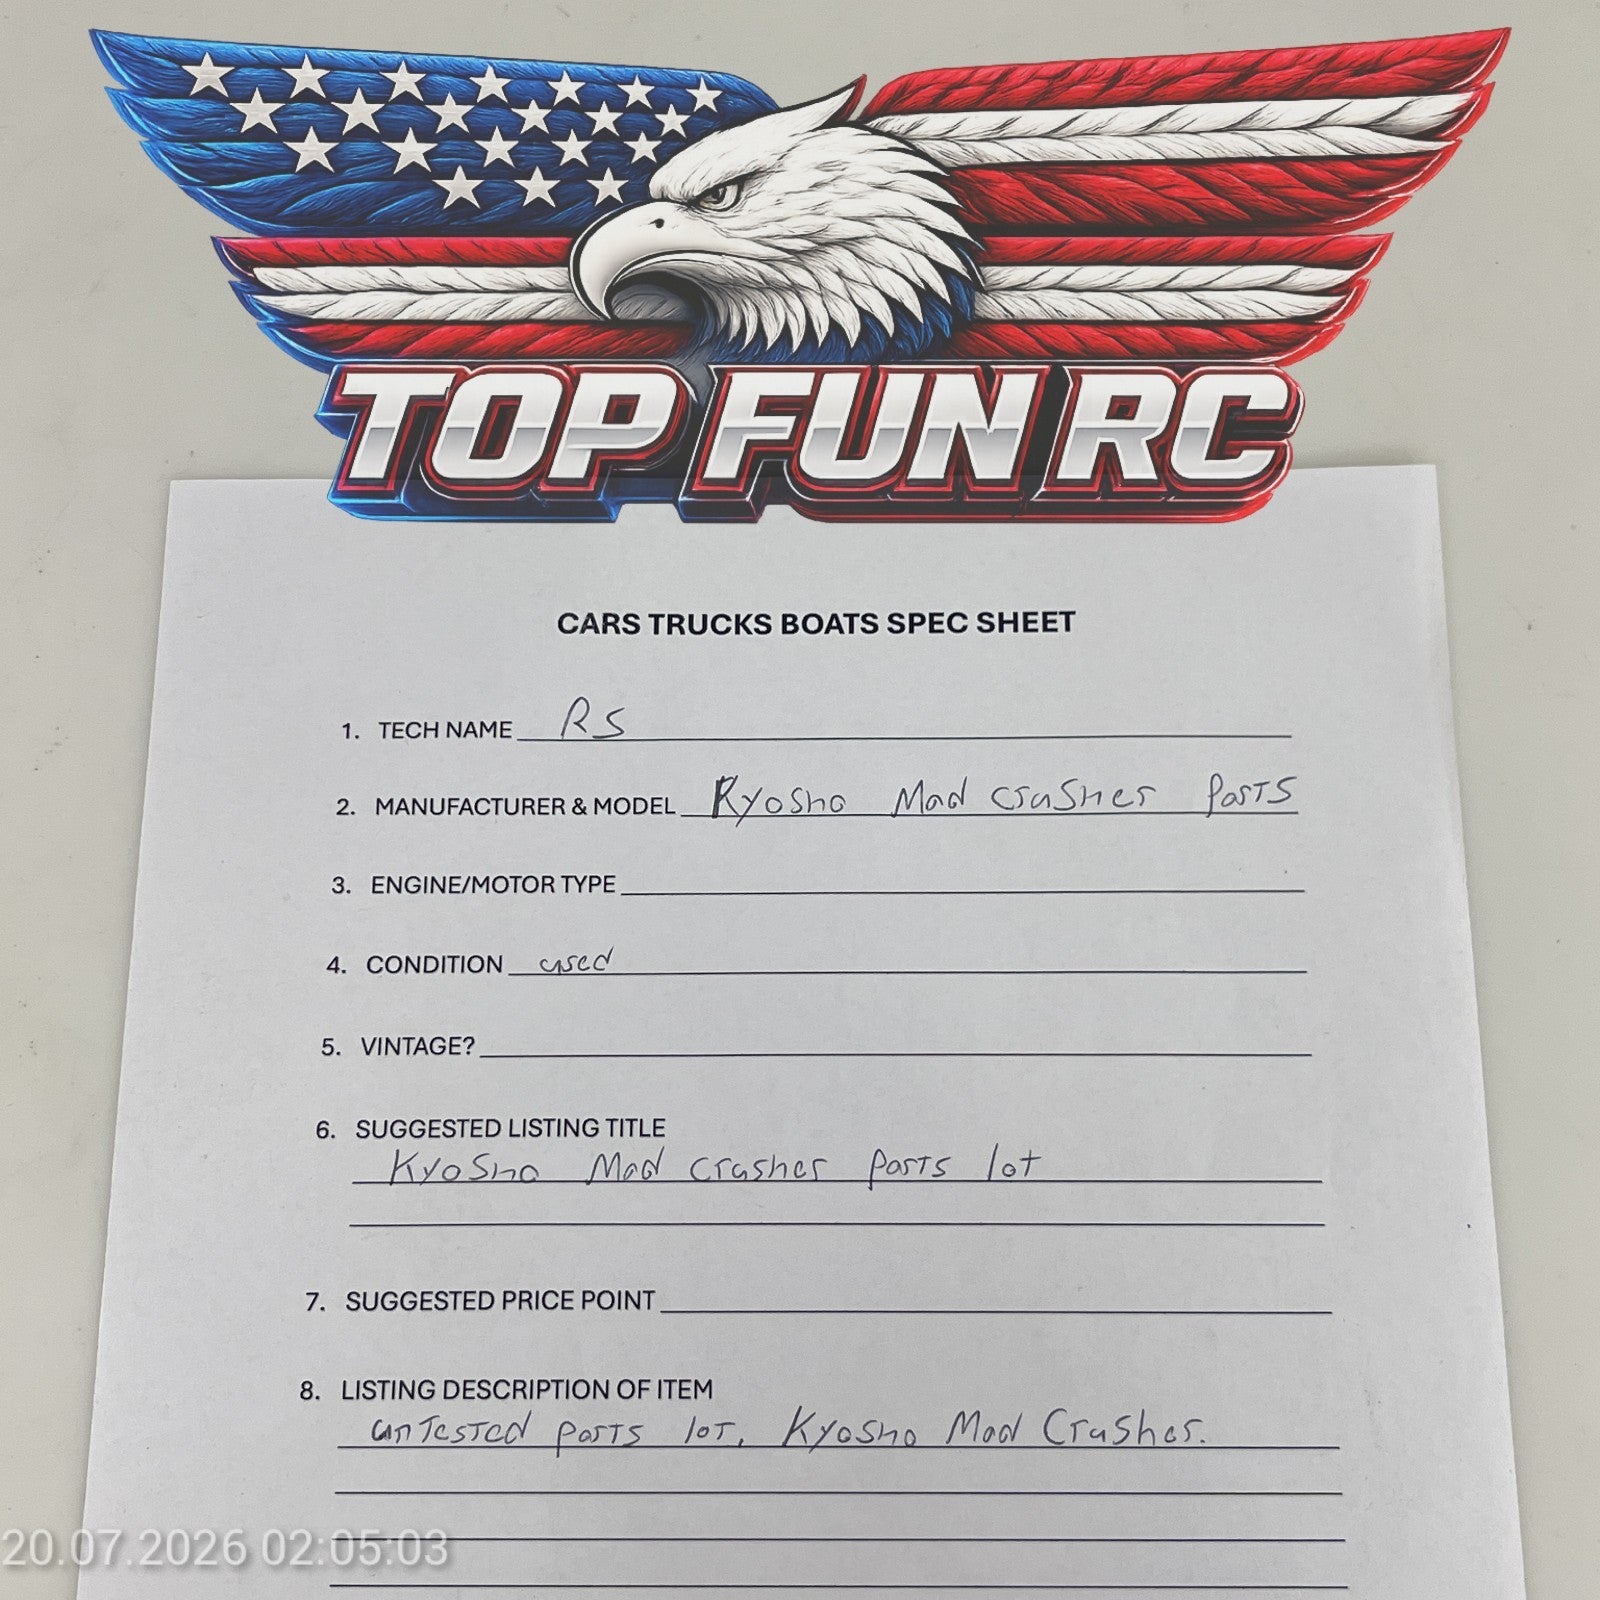 TOP FUN RC
CARS TRUCKS BOATS SPEC SHEET
1. TECH NAME RS
2. MANUFACTURER & MODEL Kyosho Mad crusher Parts
3. ENGINE/MOTOR TYPE
4. CONDITION used
5. VINTAGE?
6. SUGGESTED LISTING TITLE
Kyosho Mad crusher parts lot
7. SUGGESTED PRICE POINT
8. LISTING DESCRIPTION OF ITEM
untested parts lot. Kyosho Mad Crusher.
20.07.2026 02:05:03